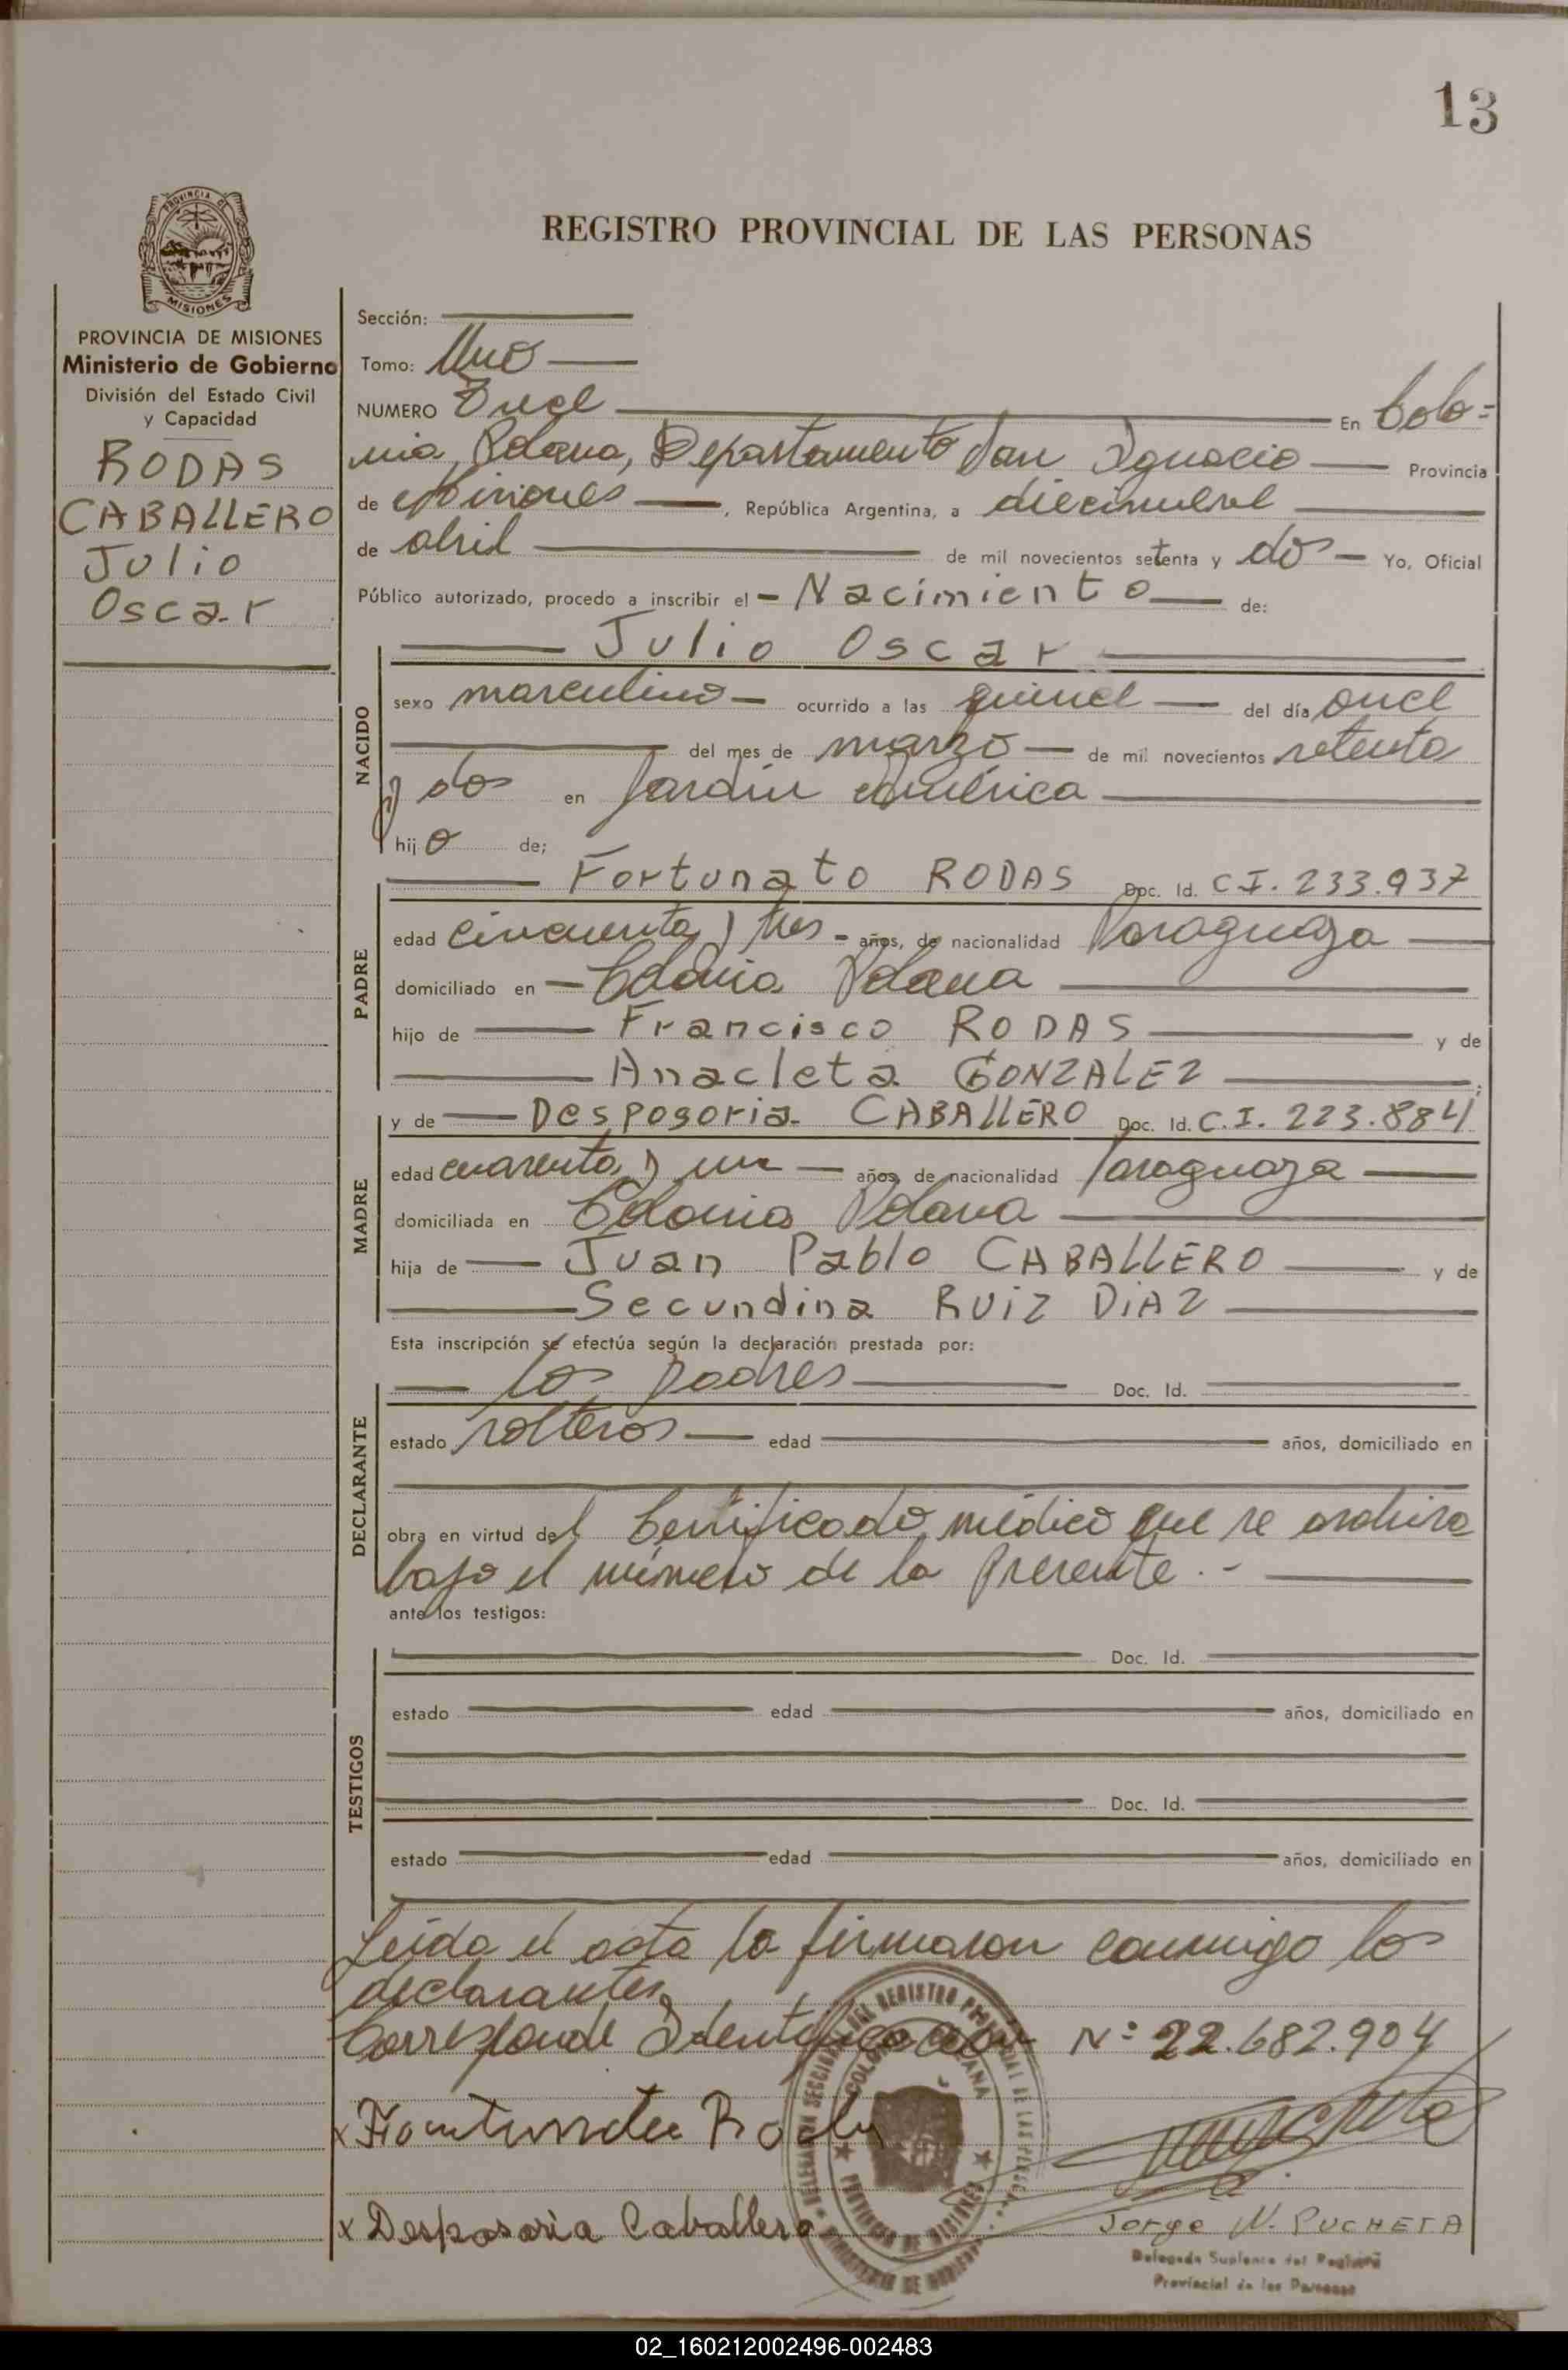 13
REGISTRO PROVINCIAL DE LAS PERSONAS
PROVINCIA DE
MISIONES
PROVINCIA DE MISIONES
Ministerio de Gobierno
División del Estado Civil
y Capacidad
RODAS
CABALLERO
Julio
Oscar
Sección:
Tomo: Uno
NUMERO Once En Colo=
nia Polana, Departamento San Ignacio Provincia
de Misiones, República Argentina, a diecinueve
de abril de mil novecientos setenta y dos Yo, Oficial
Público autorizado, procedo a inscribir el - Nacimiento de:
Julio Oscar
NACIDO
sexo masculino ocurrido a las quince del día once
del mes de marzo de mil novecientos setenta
y dos en Jardín América
hijo de;
Fortunato RODAS Doc. Id. C.I. 233.937
PADRE
edad cincuenta y tres - años, de nacionalidad Paraguaya
domiciliado en Colonia Polana
hijo de Francisco RODAS y de
Anacleta GONZALEZ
y de Desposoria CABALLERO Doc. Id. C.I. 223.884
MADRE
edad cuarenta y un años, de nacionalidad Paraguaya
domiciliada en Colonia Polana
hija de Juan Pablo CABALLERO y de
Secundina RUIZ DIAZ
Esta inscripción se efectúa según la declaración prestada por:
DECLARANTE
los padres Doc. Id.
estado solteros edad años, domiciliado en
obra en virtud del Certificado médico que se archiva
bajo el número de la presente.-
ante los testigos:
TESTIGOS
Doc. Id.
estado edad años, domiciliado en
Doc. Id.
estado edad años, domiciliado en
Leída el acta la firmaron conmigo los
declarantes
Corresponde Identificación Nº 22.682.904
x Desposoria Caballero
Jorge N. PUCHETA
Delegado Suplente del Registro
Provincial de las Personas
02_160212002496-002483